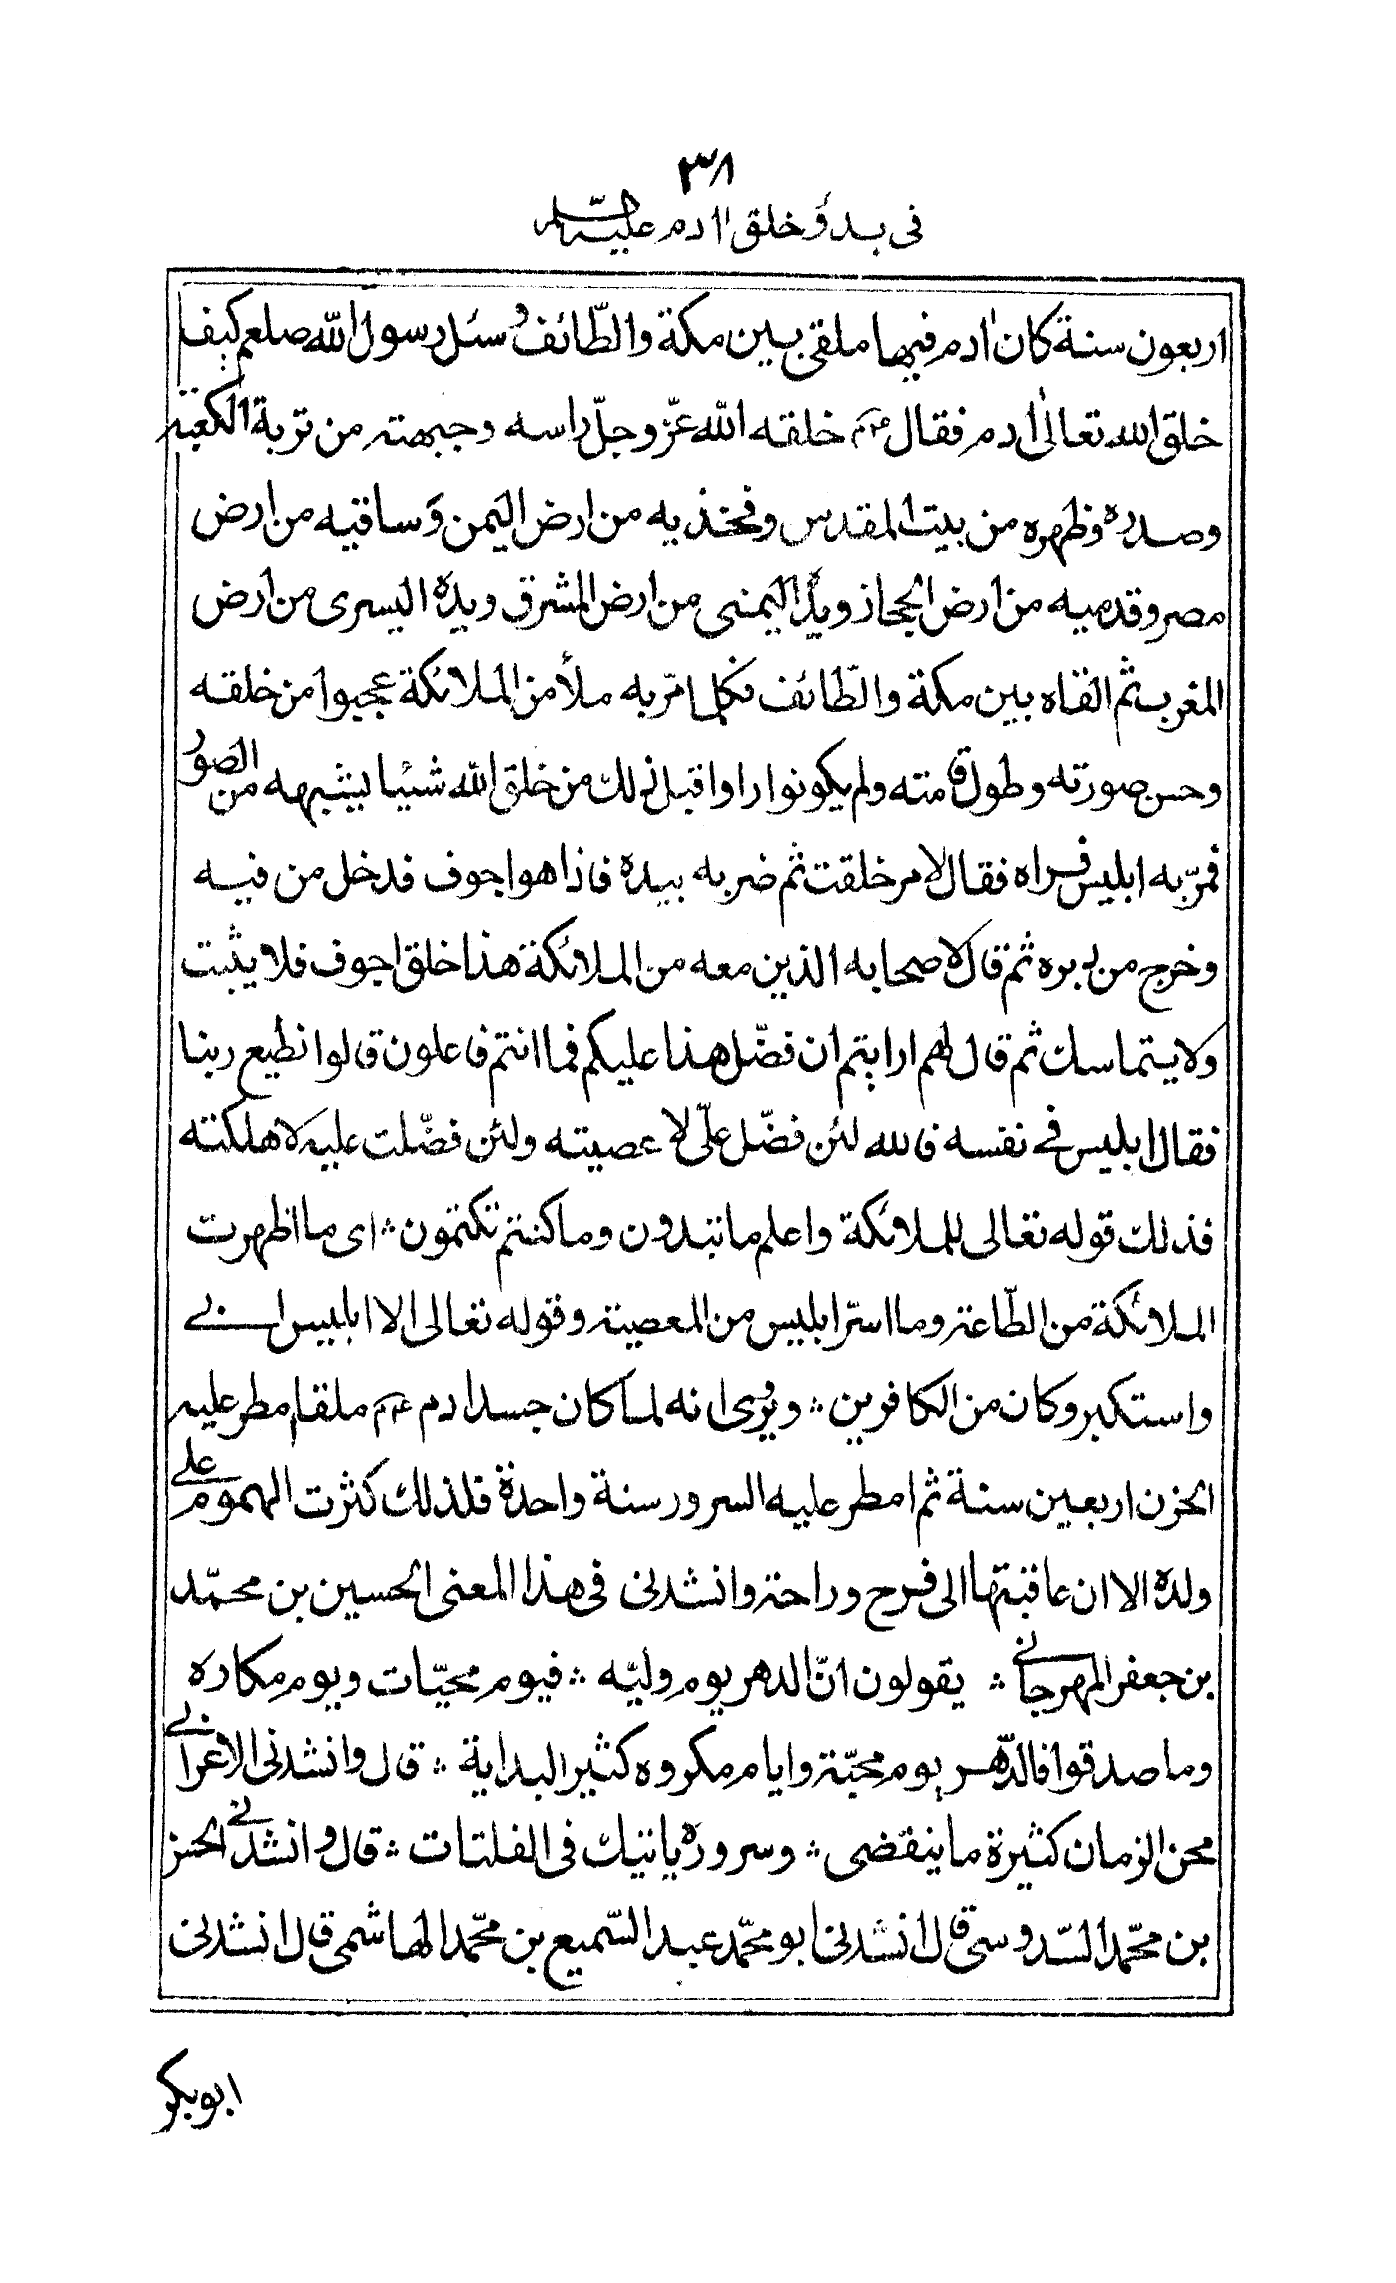 ٣٨
في بدؤ خلق اادم عليه السلم
اربعون سنة كان ادم فيها ملقى بين مكة والطّائف وسئل رسول الله صلعم كيف
خلق الله تعالى ادم فقال عم خلقه الله عزّ وجلّ راسه وجبهته من تربة الكعبة
وصدره وظهره من بيت المقدس وفخذيه من ارض اليمن وساقيه من ارض
مصر وقدميه من ارض الحجاز ويدّه اليمنى من ارض المشرق ويده اليسرى من ارض
المغرب ثم القاه بين مكة والطّائف فكلما مرّ به ملأ من الملائكة عجبوا من خلقه
وحسن صورته وطول قامته ولم يكونوا راوا قبل ذلك من خلق الله شيئا يشبهه من الصور
فمرّ به ابليس فراه فقال لامر خلقت ثم ضربه بيده فاذا هو اجوف فدخل من فيه
وخرج من دبره ثم قال لاصحابه الذين معه من الملائكة هذا خلق اجوف فلا يثبت
ولا يتماسك ثم قال لهم ارايتم ان فضّل هذا عليكم فما انتم فاعلون قالوا نطيع ربنا
فقال ابليس في نفسه فالله لئن فضّل علّي لا عصيته ولئن فضّلت عليه لاهلكته
فذلك قوله تعالى للملائكة واعلم ما تبدون وما كنتم تكتمون ؞ اى ما اظهرت
الملائكة من الطّاعة وما اسرّ ابليس من المعصية وقوله تعالى الا ابليس ابى
واستكبر وكان من الكافرين ؞ ويروى انه لما كان جسد ادم عم ملقا مطر عليه
الحزن اربعين سنة ثم امطر عليه السرور سنة واحدة فلذلك كثرت الهموم على
ولده الا ان عاقبتها الى فرح وراحة وانشدنى فى هذا المعنى الحسين بن محمّد
بن جعفر المهرجانى ؞ يقولون انّ الدهر يوم وليّه ؞ فيوم محبّات ويوم مكاره
وما صدقوا فالدّهر يوم محبّة وايام مكروه كثير البداية ؞ قال وانشدنى الاعرابى
محن الزمان كثيرة ما ينقضى ؞ وسروره ياتيك فى الفلتات ؞ قال وانشدنى الحسن
بن محمّد السّدوسى قال انشدنى ابو محمّد عبد السّميع بن محمّد الهاشمى قال انشدنى
ابوبكر